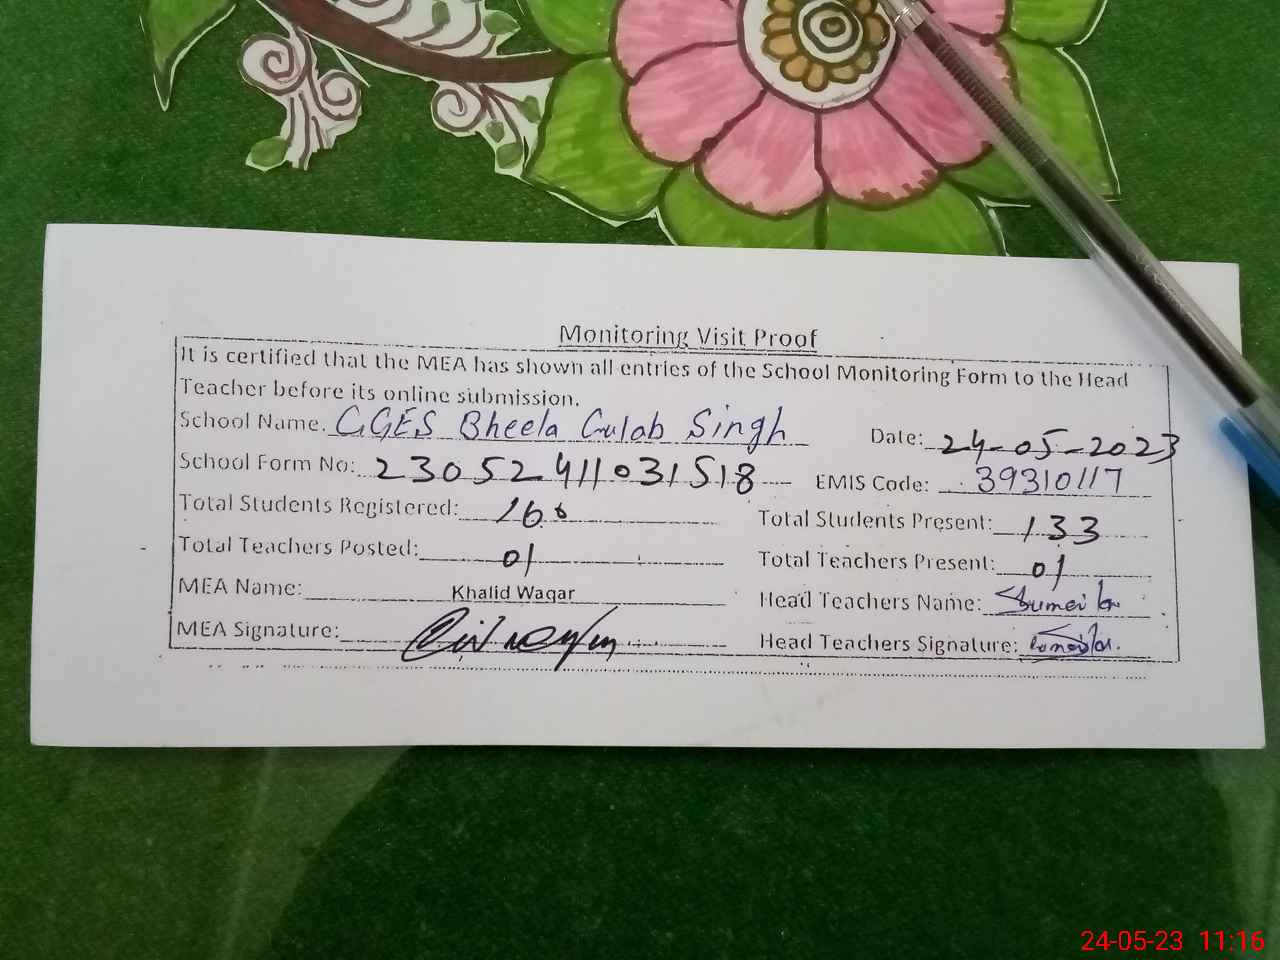 Monitoring Visit Proof
It is certified that the MEA has shown all entries of the School Monitoring Form to the Head
Teacher before its online submission.
School Name: GGES Bheela Gulab Singh Date: 24-05-2023
School Form No: 23052411031518 EMIS Code: 39310117
Total Students Registered: 166 Total Students Present: 133
Total Teachers Posted: 01 Total Teachers Present: 01
MEA Name: Khalid Waqar Head Teachers Name: Sumeila
MEA Signature: Head Teachers Signature:
24-05-23 11:16